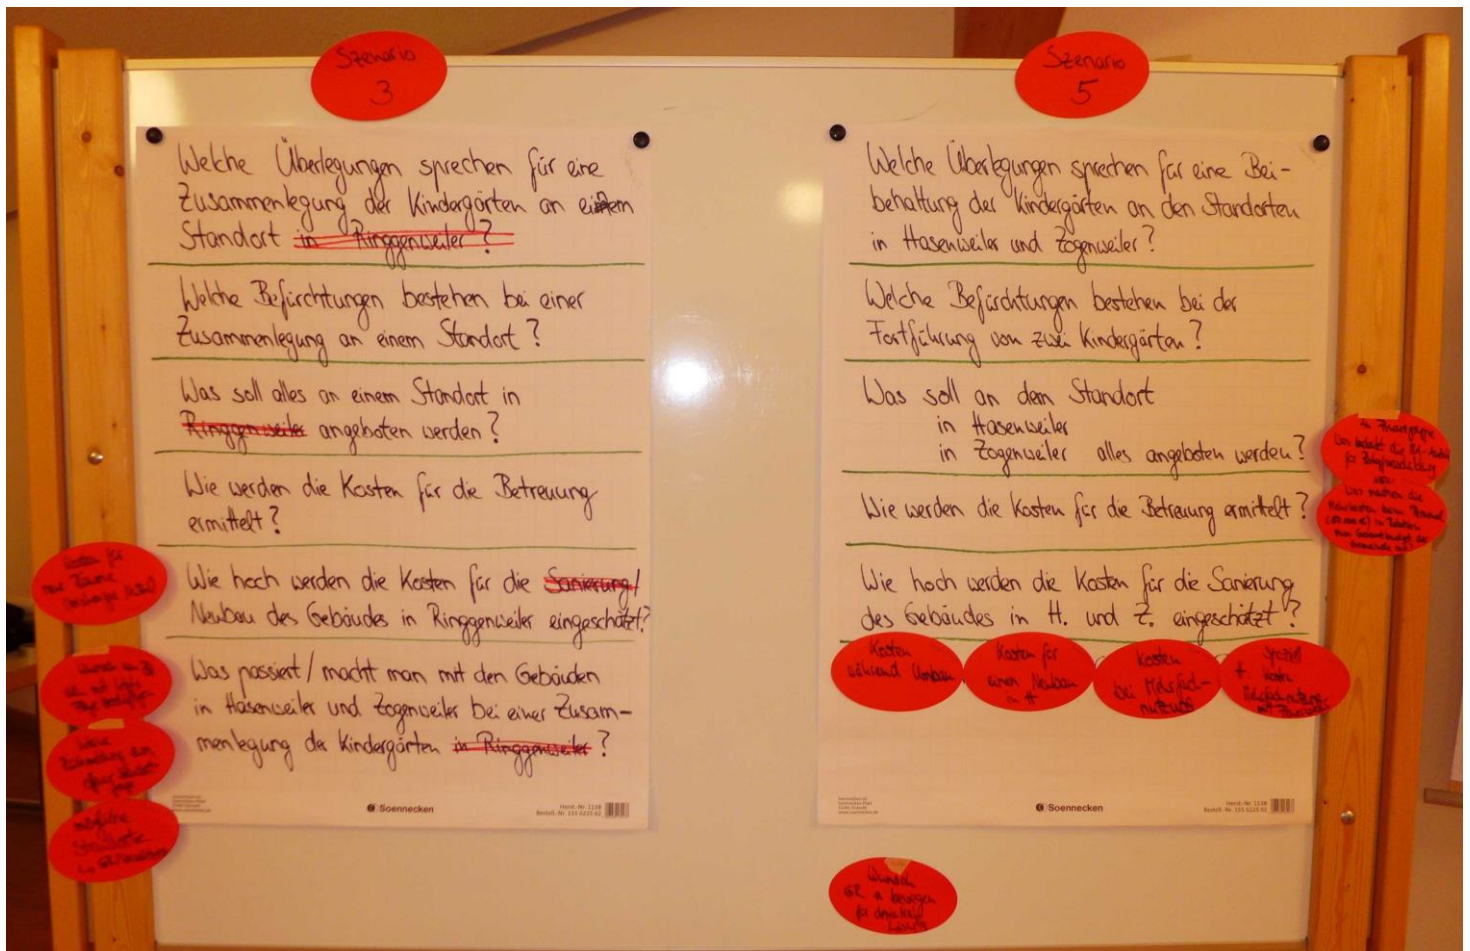 Szenario
3
Welche Überlegungen sprechen für eine
Zusammenlegung der Kindergärten an einem
Standort in Ringgenweiler?
Welche Befürchtungen bestehen bei einer
Zusammenlegung an einem Standort?
Was soll alles an einem Standort in
Ringgenweiler angeboten werden?
Wie werden die Kosten für die Betreuung
ermittelt?
Wie hoch werden die Kosten für die Sanierung/
Neubau des Gebäudes in Ringgenweiler eingeschätzt?
Was passiert/macht man mit den Gebäuden
in Hasenweiler und Zogenweiler bei einer Zusam-
menlegung der Kindergärten in Ringgenweiler?
Soennecken
Kosten für
neue Räume
mögliche
Standorte
Szenario
5
Welche Überlegungen sprechen für eine Bei-
behaltung der Kindergärten an den Standorten
in Hasenweiler und Zogenweiler?
Welche Befürchtungen bestehen bei der
Fortführung von zwei Kindergärten?
Was soll an dem Standort
in Hasenweiler
in Zogenweiler alles angeboten werden?
Wie werden die Kosten für die Betreuung ermittelt?
Wie hoch werden die Kosten für die Sanierung
des Gebäudes in H. und Z. eingeschätzt?
Kosten
während Umbau
Kosten für
einen Neubau
in H
Kosten
bei Mehrfach-
nutzung
Soennecken
Wunsch
GR
bewegen